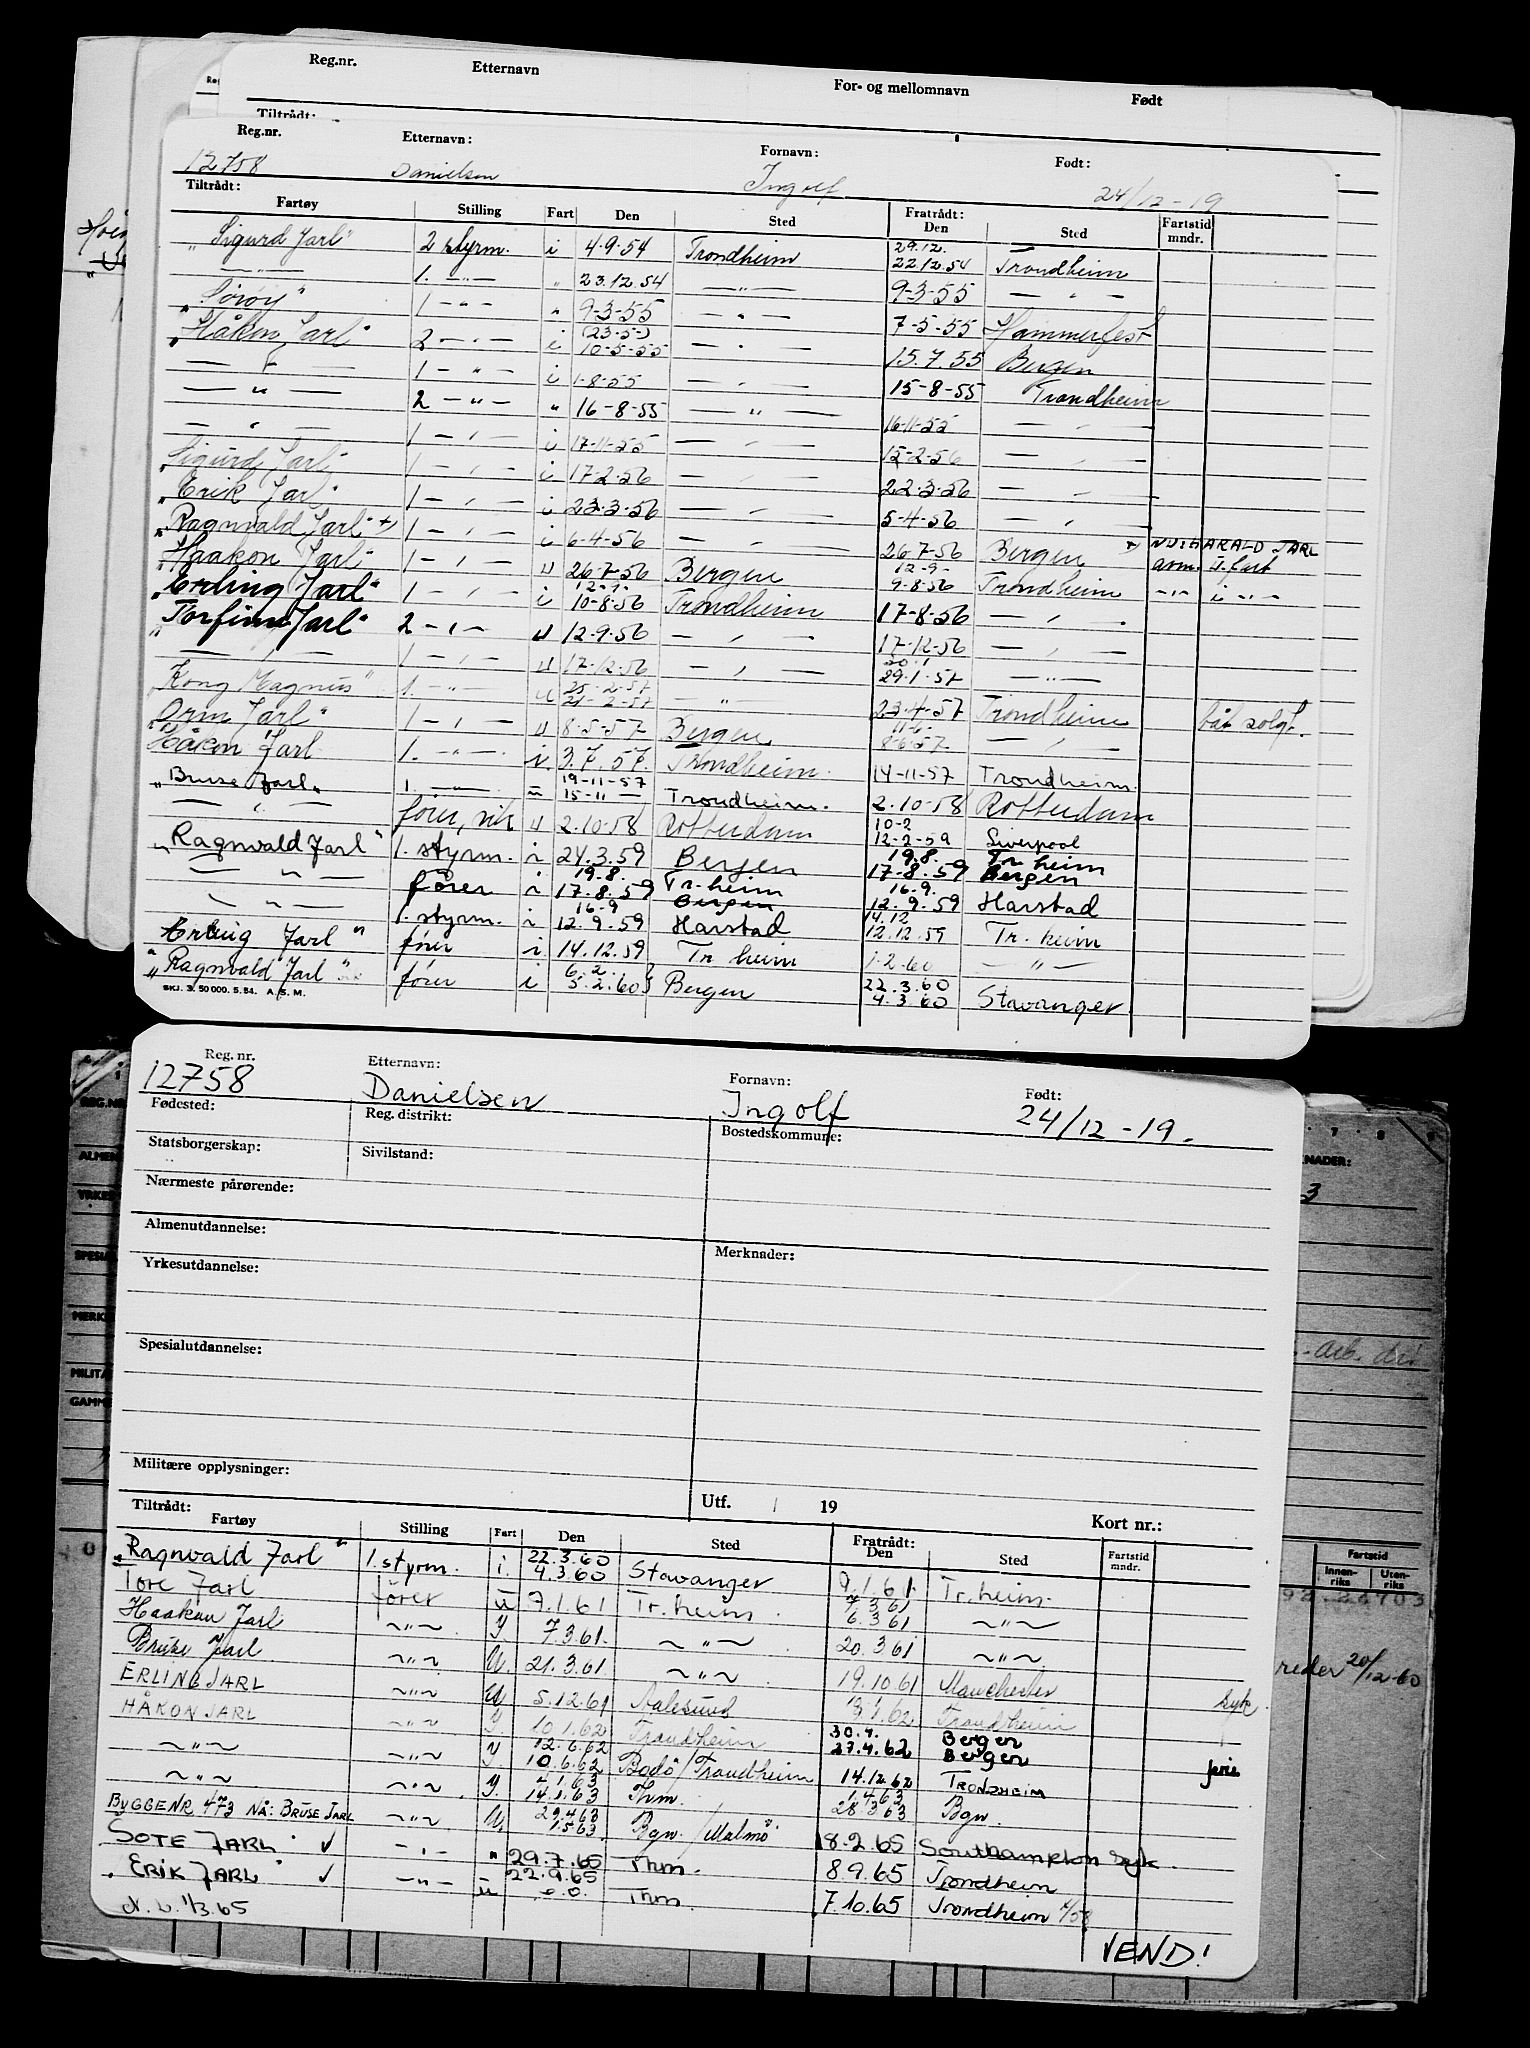 Reg.nr. Etternavn For- og mellomnavn Født
Tiltrådt:
Reg.nr. Etternavn: Fornavn: Født:
12758 Danielsen Ingolf 24/12-19
Tiltrådt: Fratrådt:
Fartøy Stilling Fart Den Sted Den Sted Fartstid mndr.
"Sigurd Jarl" 2 styrm. i 4.9.54 Trondheim 29.12. 22.12.54 Trondheim
—"— 1. —"— " 23.12.54 —"— 9-3-55 — " —
"Sørøy" 1 — " — " 9-3-55 — " — 7-5-55 Hammerfest
"Håkon Jarl" 2 — " — i (23-5-) 10-5-55 — " — 15.7.55 Bergen
— " — 1 — " — i 1-8-55 — " — 15-8-55 Trondheim
— " — 2 — " — " 16-8-55 — " — 16-11-55 — " —
— " — 1 — " — i 17-11-55 — " — 15-2-56 — " —
"Sigurd Jarl" 1 — " — i 17-2-56 — " — 22-3-56 — " —
"Erik Jarl" 1 — " — i 23-3-56 — " — 5-4-56 — " —
"Ragnvald Jarl" +) 1 — " — i 6-4-56 — " — 26-7-56 Bergen +) NU: HARALD JARL
"Haakon Jarl" 1 — " — u 26-7-56 Bergen 12-9- 9-8-56 Trondheim
"Erling Jarl" 1 — " — i 12-9- 10-8-56 Trondheim 17-8-56 — " —
"Torfinn Jarl" 2 — " — u 12-9-56 — " — 17-12-56 — " —
— " — 1 — " — u 17-12-56 — " — 30.1 29.1.57 — " —
"Kong Magnus" 1. — " — u 25-2-57 21-2-57 — " — 23-4-57 Trondheim båt solgt.
"Orm Jarl" 1 — " — u 8-5-57 Bergen 11-6- 8-6-57 — " —
"Håkon Jarl 1. — " — i 3.7.57. Trondheim. 14-11-57 Trondheim.
"Bruse Jarl" 1. — " — u 19-11-57 15-11 — Trondheim. 2.10-58 Rotterdam
— " — fører, vik u 2.10-58 Rotterdam 10-2 12-2-59 Liverpool
"Ragnvald Jarl" 1. styrm. i 24.3.59 Bergen 19.8. 17.8.59 Tr. heim Bergen
— " — fører i 19.8. 17.8.59 Tr. heim Bergen 16.9. 12.9.59 Harstad
— " — 1. styrm. i 16-9 12.9.59 Harstad 14.12 12.12.59 Tr. heim
"Erling Jarl" fører i 14.12.59 Tr heim 1-2-60 — " —
"Ragnvald Jarl" fører i 6.2. 5.2.60 Bergen 22.3.60 4.3.60 Stavanger
SKJ. 3. 50 000. 5. 54. A. S. M.
Reg. nr. Etternavn: Fornavn: Født:
12758 Danielsen Ingolf 24/12-19.
Fødested: Reg. distrikt: Bostedskommune:
Statsborgerskap: Sivilstand:
Nærmeste pårørende:
Almenutdannelse:
Yrkesutdannelse: Merknader:
Spesialutdannelse:
Militære opplysninger:
Utf. / 19 Kort nr.:
Tiltrådt: Fratrådt:
Fartøy Stilling Fart Den Sted Den Sted Fartstid mndr.
"Ragnvald Jarl" 1. styrm. i. 22.3.60 4.3.60 Stavanger 9.1.61. Tr. heim.
Tore Jarl fører u 7.1.61 Tr. heim. 7.3.61 6.3.61 ~"~
Haakon Jarl ~"~ Y. 7.3.61. ~"~ 20.3.61 ~"~
Bruse Jarl ~"~ U. 21.3.61 ~"~ 19.10.61 Manchester syk.
ERLING JARL ~"~ U 5.12.61 Aalesund 3.1.62 Trondheim
HÅKON JARL ~"~ Y. 10.1.62 Trondheim 30.4. 27.4.62 Bergen Bergen
~"~ ~"~ Y 12.6.62 10.6.62 Bodö/Trondheim 14.12.62 TRONDHEIM ferie
~"~ ~"~ Y. 14.1.63 Thm. 1.4.63 28.3.63 Bgn.
BYGGENR 473 NÅ: BRUSE JARL ~"~ U. 29.4.63 1.5.63 Bgn./Malmö 18.2.65 Southampton syk.
SOTE JARL √ —"— " 29.7.65 Thm. 8.9.65 Trondheim
"ERIK JARL" √ —"— u 22.9.65 Thm. 7.10.65 Trondheim
1/3.65
VEND!
Fartstid
Innenriks Utenriks
reder 20/12-60